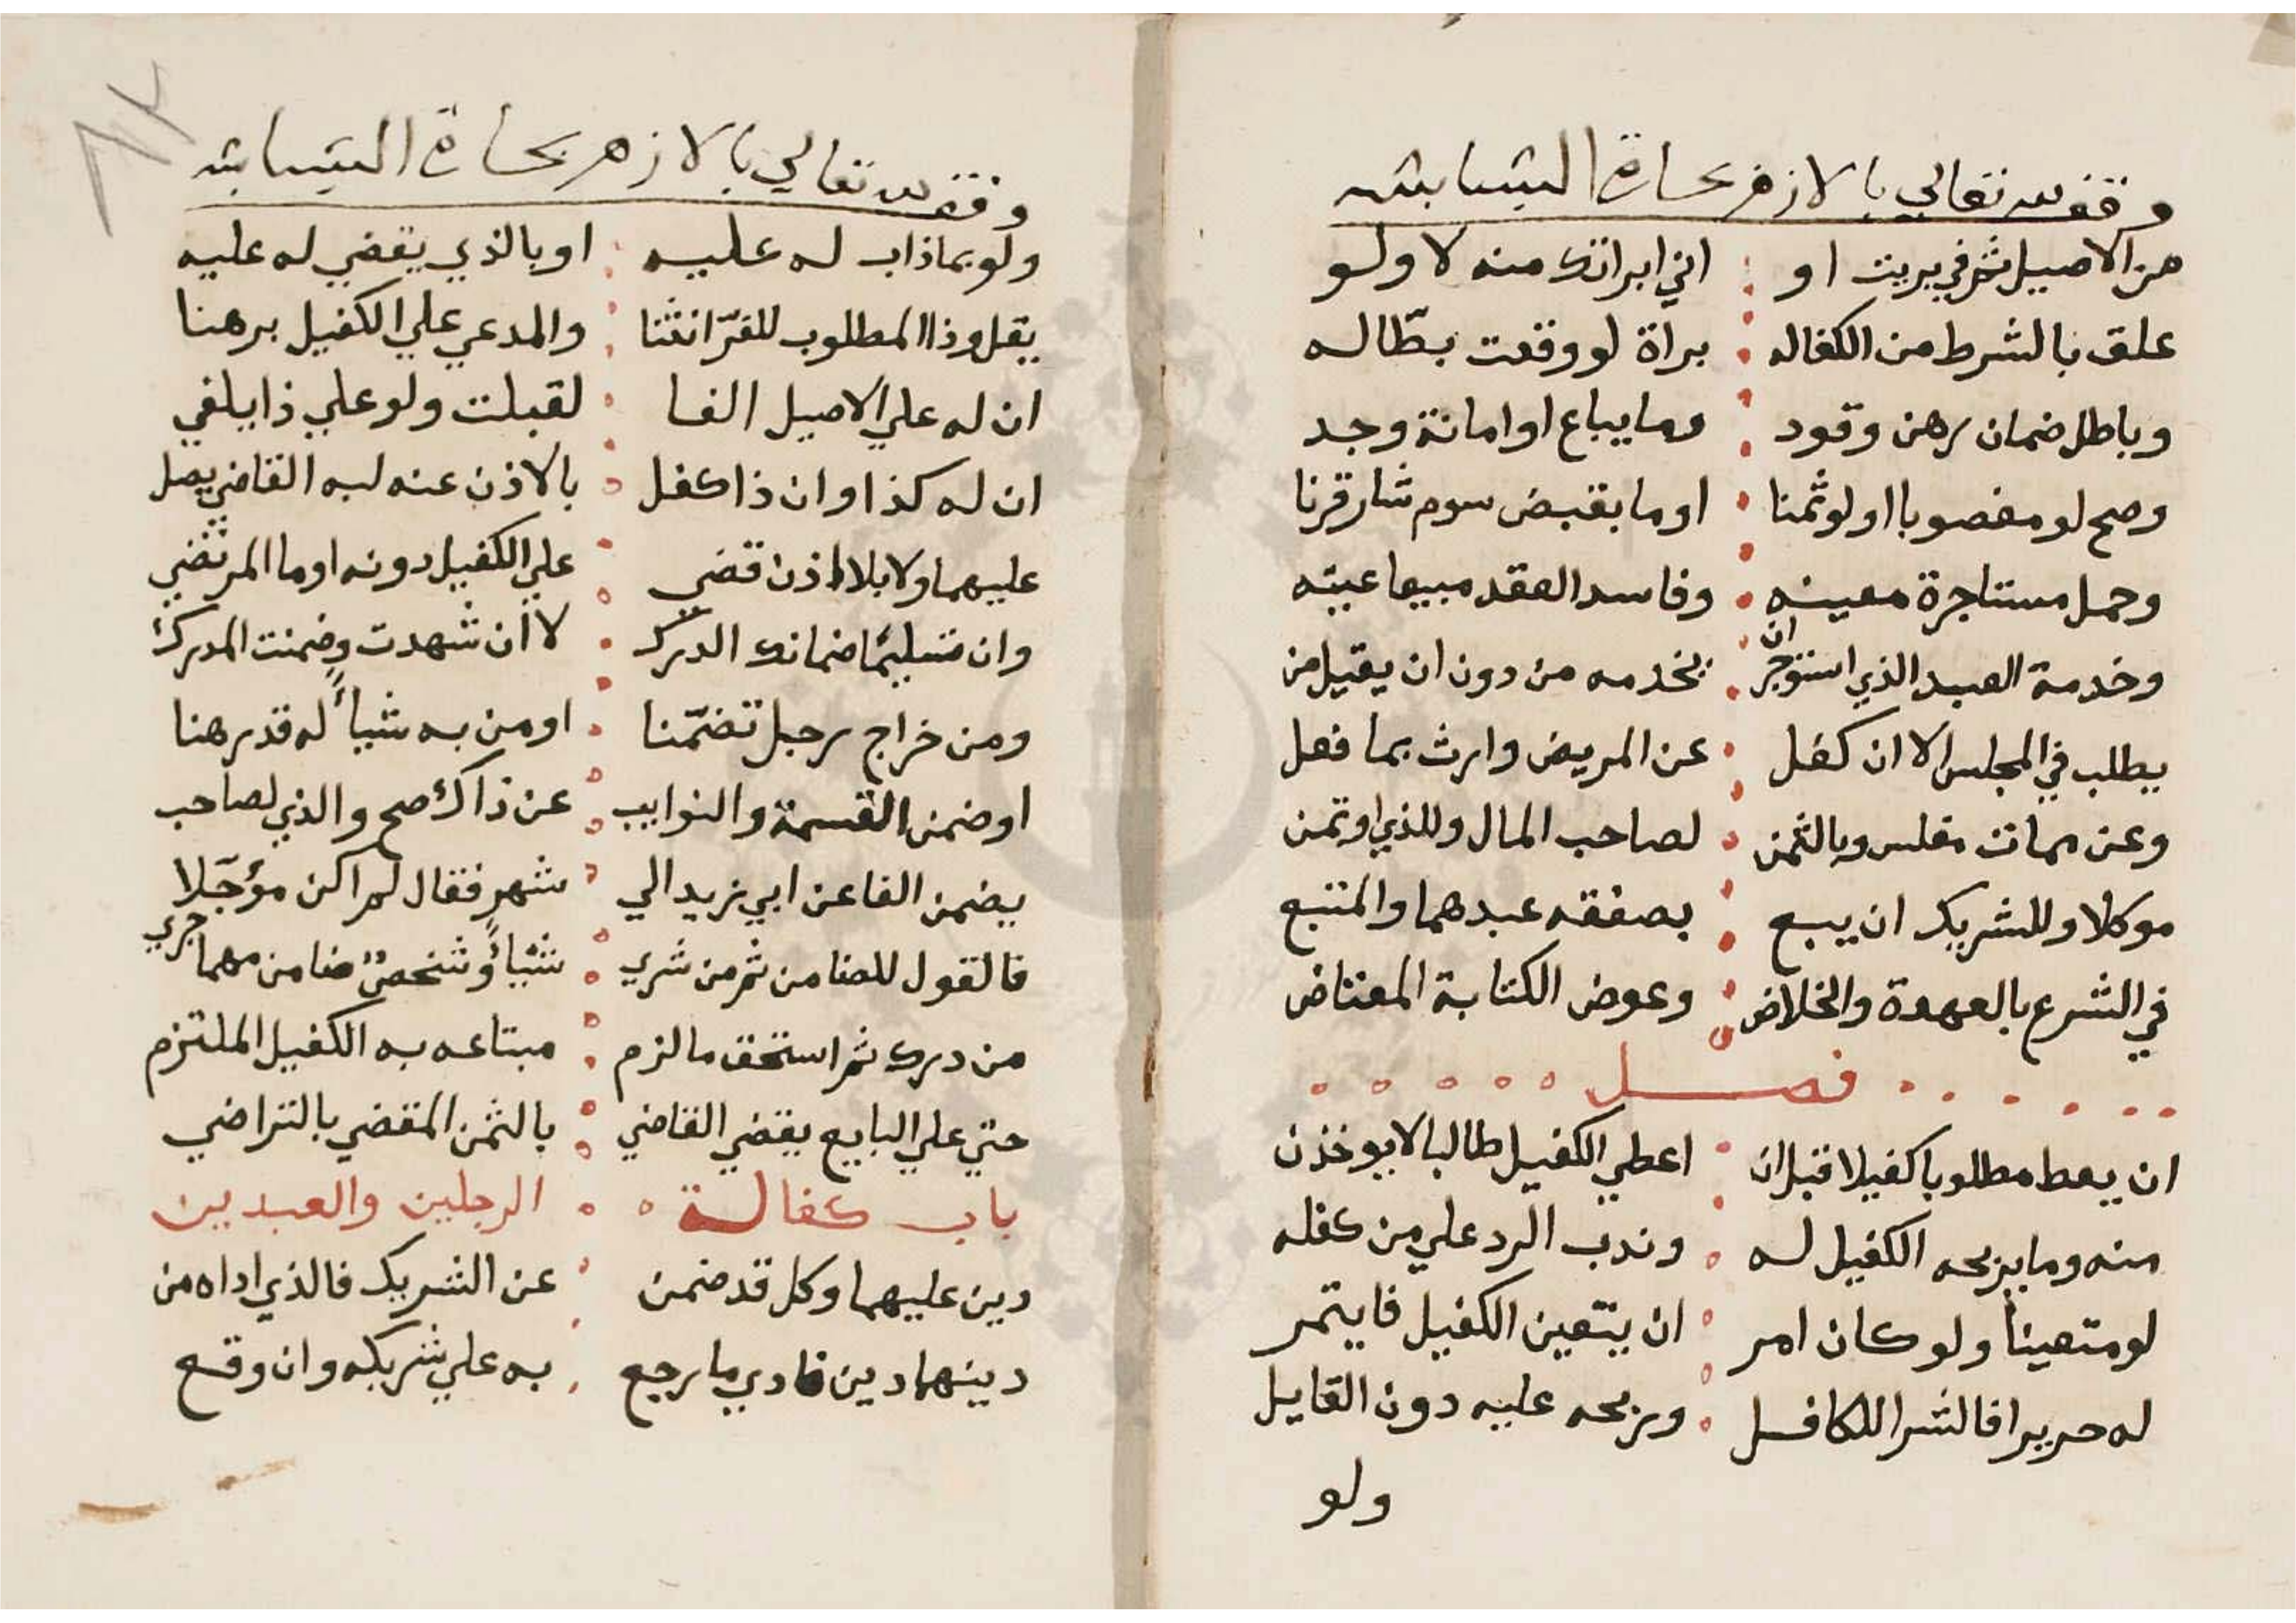 وقف لله تعالي بالازهر بحارة البشابشه
من الاصيل ثم في بريت او اني ابراتك منه لا ولو
علق بالشرط من الكفاله براة لو وقعت بطّاله
وباطل ضمان رهن وقود وما يباع او امانة وجد
وصح لو مغصوبا او لو ثمنا او ما بقبض سوم شار قرنا
وحمل مستاجرة معينه وفاسد العقد مبيعا عينه
وخدمة العبد الذي استوجر ان بخدمه من دون ان يقيل من
يطلب في المجلس الا ان كفل عن المريض وارث بما فعل
وعن مات مفلس وبالثمن لصاحب المال وللذي اوتمن
موكلا وللشريك ان يبع بصفقه عبدهما والمتبع
في الشرع بالعهدة والخلاض وعوض الكتابة المعتاض
فصل
ان يعط مطلوبا كفيلا قبل ان اعطي الكفيل طالبا لا يوخذن
منه وما يربحه الكفيل له وندب الرد علي من كفله
لو متعينا ولو كان امر ان يتعين الكفيل فايتمر
له حريرا فالشرا للكافل وربحه عليه دون القايل
ولو
وقف لله تعالي بالازهر بحارة البشابشه
ولو بما ذاب له عليه او بالذي يقضي له عليه
يقل وذا المطلوب للغرّ انثنا والمدعي علي الكفيل برهنا
ان له علي الاصيل الفا لقبلت ولو علي ذا يلفي
ان له كذا وان ذا كفل بالاذن عنه لبه القاضي يصل
عليهما ولا بلا اذن قضي علي الكفيل دونه او ما المرتضي
وان تسليما ضمانك الدرك لا ان شهدت وضمنت المدرك
ومن خراج رجل تضمّنا او من به شيأ له قد رهنا
او ضمن القسمة والنوايب عن ذاك صح والذي لصاحب
يضمن الفا عن ابي زيد الي شهر فقال لم اكن مؤجّلا
فالقول للضامن ثم من شري شيأ وشخص ضامن مهما جري
من درك ثم استحق ما لزم مبتاعه به الكفيل الملتزم
حتي علي البايع يقضي القاضي بالثمن المقضي بالتراضي
باب كفالة الرجلين والعبدين
دين عليهما وكل قد ضمن عن الشريك فالذي اداه من
دينهما دين فادي ما رجع به علي شريكه وان وقع